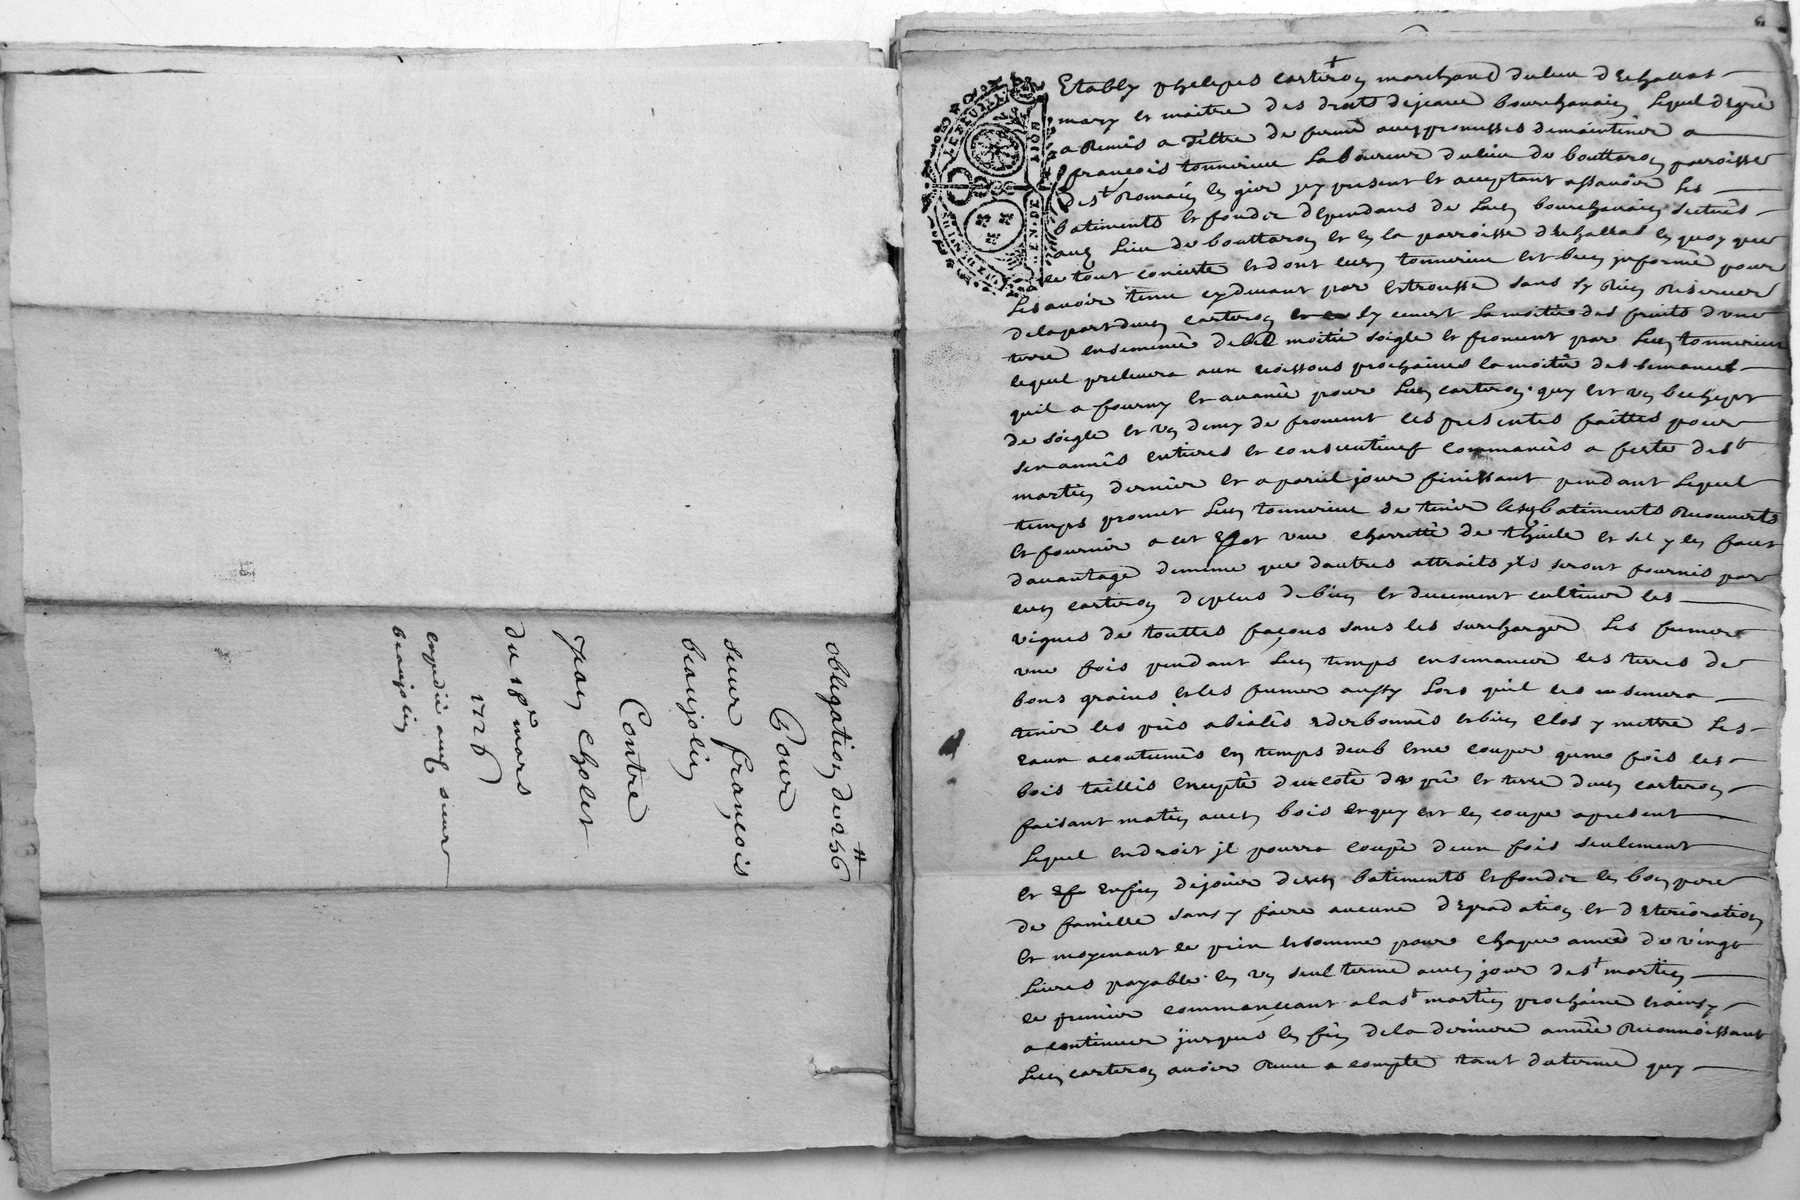 obligation de 246 ₶
Pour
sieur françois
beaujolin
Contre
Jean cholet
du 18e mars
1726
expedié audt sieur
beaujolin
Estably phelipes carteron marchand du lieu dechallas
mary et maitre des droits de jeane bourchanain lequel de gré
a remis a tiltre de ferme avec promesses de maintenir a
françois tonnerieux laboureur du lieu de bouttaron parroisse
de st Romain en gier jcy present et acceptant assavoir les
batiments et fondz dependans de lad bourchanain scitués
aud lieu de bouttaron et en la parroisse dechallas en quoy que
le tout conciste et dont led tonnerieux est bien jnformé pour
les avoir tenu cy devant par estrousse sans sy rien reserver
de la part dud carteron sy cenest la moitié des fruits dune
terre ensemencé de bled moitié soigle et froment par led tonnerieux
lequel prelevera aux moissons prochaines la moitié des semances
quil a fourny et avancé pour led carteron quy est un bechept
de soigle et un demy de froment ces presentes faittes pour
six années entieres et consecutives commancés a feste de st
martin dernier et a pareil jour finissant pendant lequel
temps promet led tonnerieux de tenir lesd batiments recouverts
et fournir a cet effet une charretté de thuile et sil y en faut
davantage de meme que dautres attraits jls seront fournis par
led carteron de plus de bien et deuement cultiver les
vignes de touttes façons sans les surcharger les fumer
une fois pendant led temps ensemancer les terres de
bons grains et les fumer aussy lors quil les ensemera
tenir les prés abialés et derbonnés et bien clos y mettre les
eaux acoutumés en temps deub et ne couper quune fois les
bois taillis excepté du coté de pré et terre dud carteron
faisant matin aud bois et quy est en coupe apresent
lequel endroit jl pourra coupé deux fois seulement
et enfin de jouir desd batiments et fondz en bon pere
de famille sans y faire aucune degradation et deterioration
et moyenant le prix et somme pour chaque année de vingt
livres payable en un seul terme aud jour de st martin
le premier commenceant a la st martin prochaine et ainsy
a continuer jusques en fin de la derniere année reconnoissant
led carteron avoir receu a compte tant du terme quy